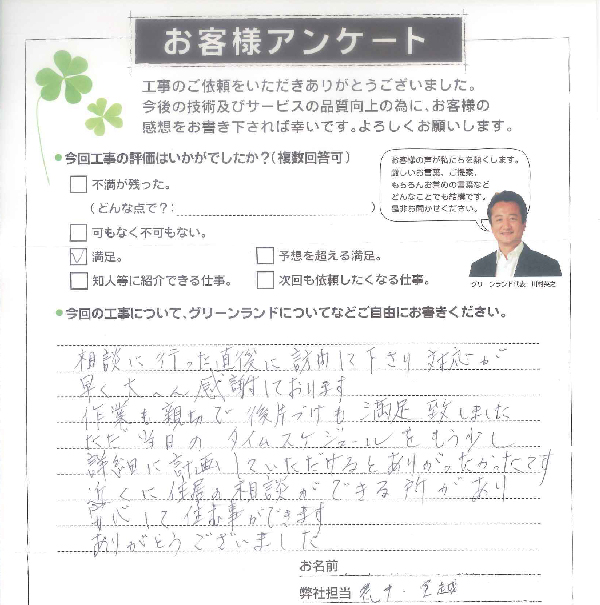 お客様アンケート
工事のご依頼をいただきありがとうございました。
今後の技術及びサービスの品質向上の為に、お客様の
感想をお書き下されば幸いです。よろしくお願いします。
●今回工事の評価はいかがでしたか?(複数回答可)
不満が残った。
(どんな点で?: )
可もなく不可もない。
満足。
予想を超える満足。
知人等に紹介できる仕事。
次回も依頼したくなる仕事。
お客様の声が私たちを熱くします。
厳しいお言葉、ご提案、
もちろんお褒めの言葉など
どんなことでも結構です。
是非お聞かせください。
グリーンランド代表
●今回の工事について、グリーンランドについてなどご自由にお書きください。
相談に行った直後に訪問して下さり 対応が
早くたいへん感謝しております
作業も親切で 後片づけも 満足 致しました
ただ 当日の タイムスケジュールを もう少し
詳細に計画していただけるとありがたかったです
近くに住居の相談ができる所があり
安心して住む事ができます
ありがとうございました
お名前
弊社担当